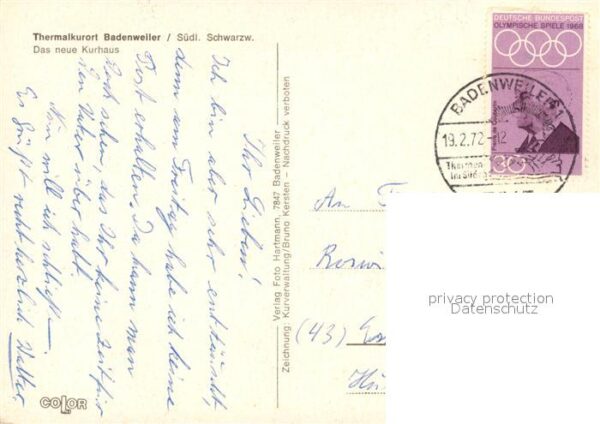 Thermalkurort Badenweiler / Südl. Schwarzw.
Das neue Kurhaus
Ihr Lieben!
Ich bin aber sehr enttäuscht,
denn am Freitag habe ich keine
Post erhalten. Da kann man
doch sehen das Ihr keine Zeit für
den Vater über habt.
Nun will ich schließen.
Es grüßt recht herzlich Walter
COLOR
Verlag Foto Hartmann, 7847 Badenweiler
Zeichnung: Kurverwaltung/Bruno Kersten — Nachdruck verboten
DEUTSCHE BUNDESPOST
OLYMPISCHE SPIELE 1968
30
BADENWEILER 1
19.2.72-12
Thermen
An
(43)
privacy protection
Datenschutz